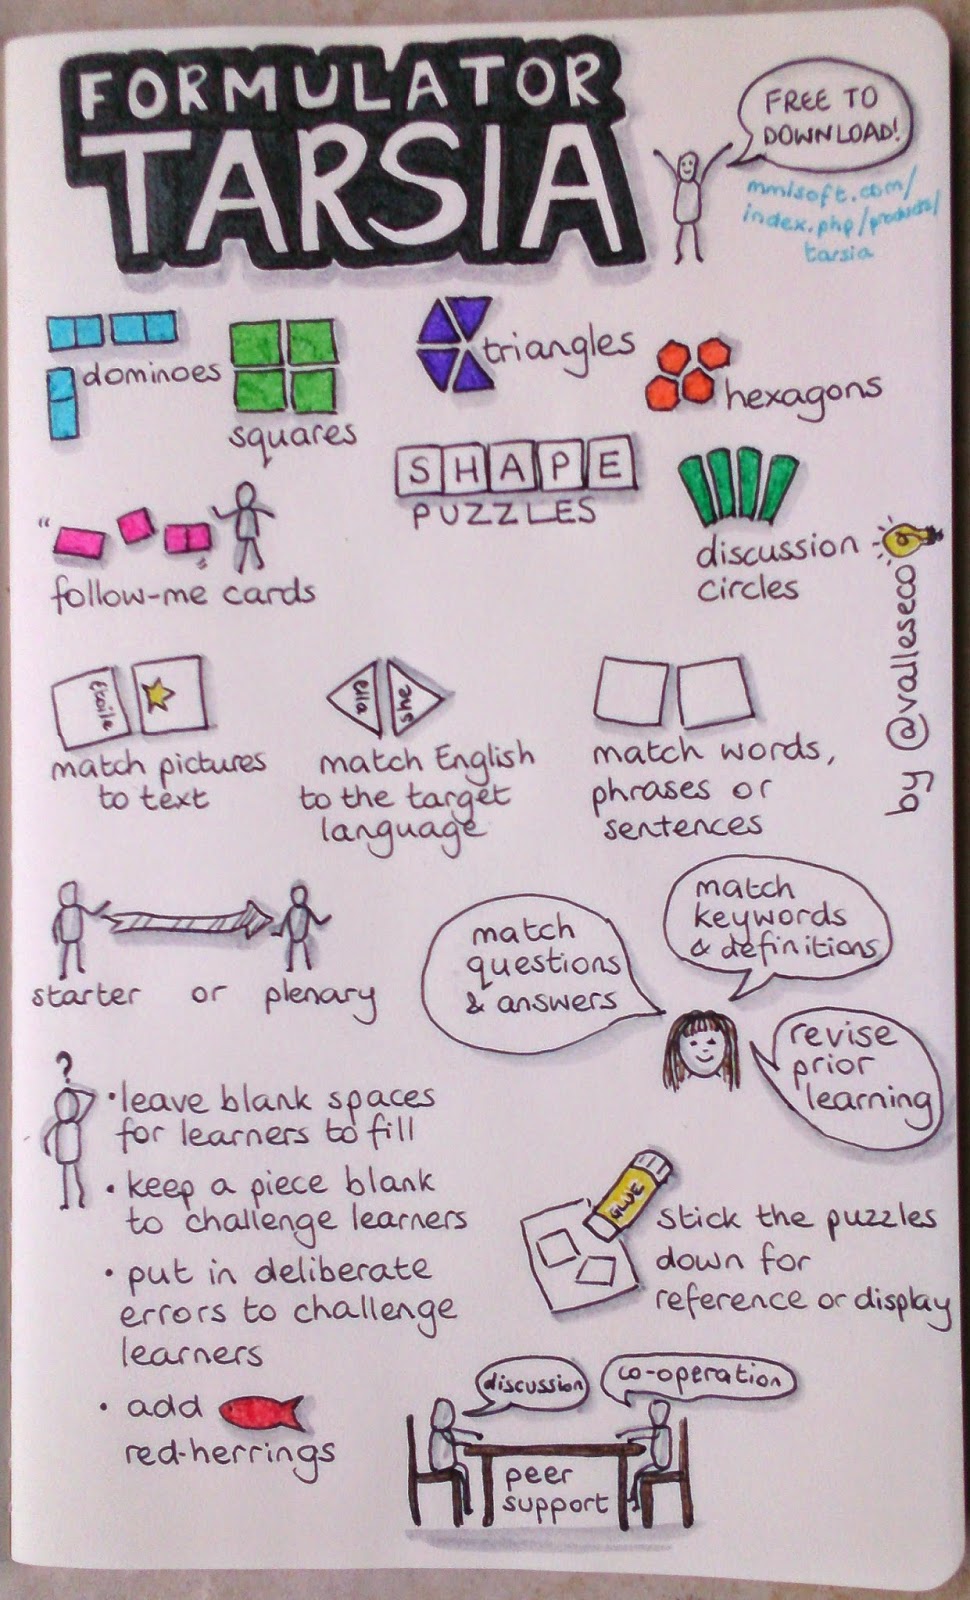 FORMULATOR
TARSIA
FREE TO
DOWNLOAD!
mmlsoft.com/
index.php/products/
tarsia
dominoes
squares
triangles
hexagons
SHAPE
PUZZLES
follow-me cards
discussion
circles
by @valleseco
étoile
match pictures
to text
ella
she
match English
to the target
language
match words,
phrases or
sentences
starter or plenary
match
questions
& answers
match
keywords
& definitions
revise
prior
learning
?
• leave blank spaces
for learners to fill
• keep a piece blank
to challenge learners
• put in deliberate
errors to challenge
learners
• add
red-herrings
GLUE
stick the puzzles
down for
reference or display
discussion
co-operation
peer
support